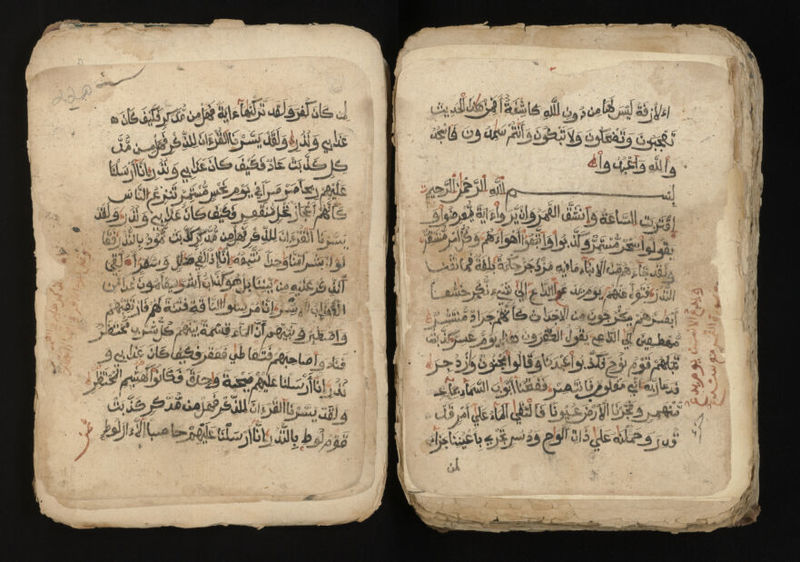 اءلازفة ليس لها من دون الله كاشفة أفمن هذا الحديث
تعجبون وتضحكون ولا تبكون وأنتم سمدون فاسجد
والله واعبدوا
بسم الله الرحمن الرحيم
اقتربت الساعة وانشق القمر وان يروا ءاية يعرضوا و
يقولوا سحر مستمر وكذبوا واتبعوا أهواءهم وكل أمر مستقر
ولقد جاءهم من الانباء ما فيه مزدجر حكمة بلغة فما تغن
النذر فتول عنهم يوم يدع الداع الى شيء نكر خشعا
أبصرهم يخرجون من الاجداث كأنهم جراد منتشر
مهطعين الى الداع يقول الكفرون هذا يوم عسر كذبت
قبلهم قوم نوح فكذبوا عبدنا وقالوا مجنون وازدجر
فدعا ربه أني مغلوب فانتصر ففتحنا أبوب السماء بماء
منهمر وفجرنا الارض عيونا فالتقى الماء على أمر قد
قدر وحملنه على ذات ألوح ودسر تجري بأعيننا جزاء
لمن
لمن كان كفر ولقد تركنها ءاية فهل من مدكر فكيف كان
عذابي ونذر ولقد يسرنا القرءان للذكر فهل من مد
كر كذبت عاد فكيف كان عذابي ونذر انا أرسلنا
عليهم ريحا صرصرا في يوم نحس مستمر تنزع الناس
كأنهم أعجاز نخل منقعر فكيف كان عذابي ونذر ولقد
يسرنا القرءان للذكر فهل من مدكر كذبت ثمود بالنذر فقا
لوا أبشرا منا وحدا نتبعه إنا إذا لفي ضلل وسعر أءلقي
الذكر عليه من بيننا بل هو كذاب أشر سيعلمون غدا من
الكذاب الاشر انا مرسلوا الناقة فتنة لهم فارتقبهم
واصطبر ونبئهم أن الماء قسمة بينهم كل شرب محتضر
فنادوا صاحبهم فتعاطى فعقر فكيف كان عذابي و
نذر انا أرسلنا عليهم صيحة وحدة فكانوا كهشيم المحتظر
ولقد يسرنا القرءان للذكر فهل من مدكر كذبت
قوم لوط بالنذر انا أرسلنا عليهم حاصبا الا ءال لوط